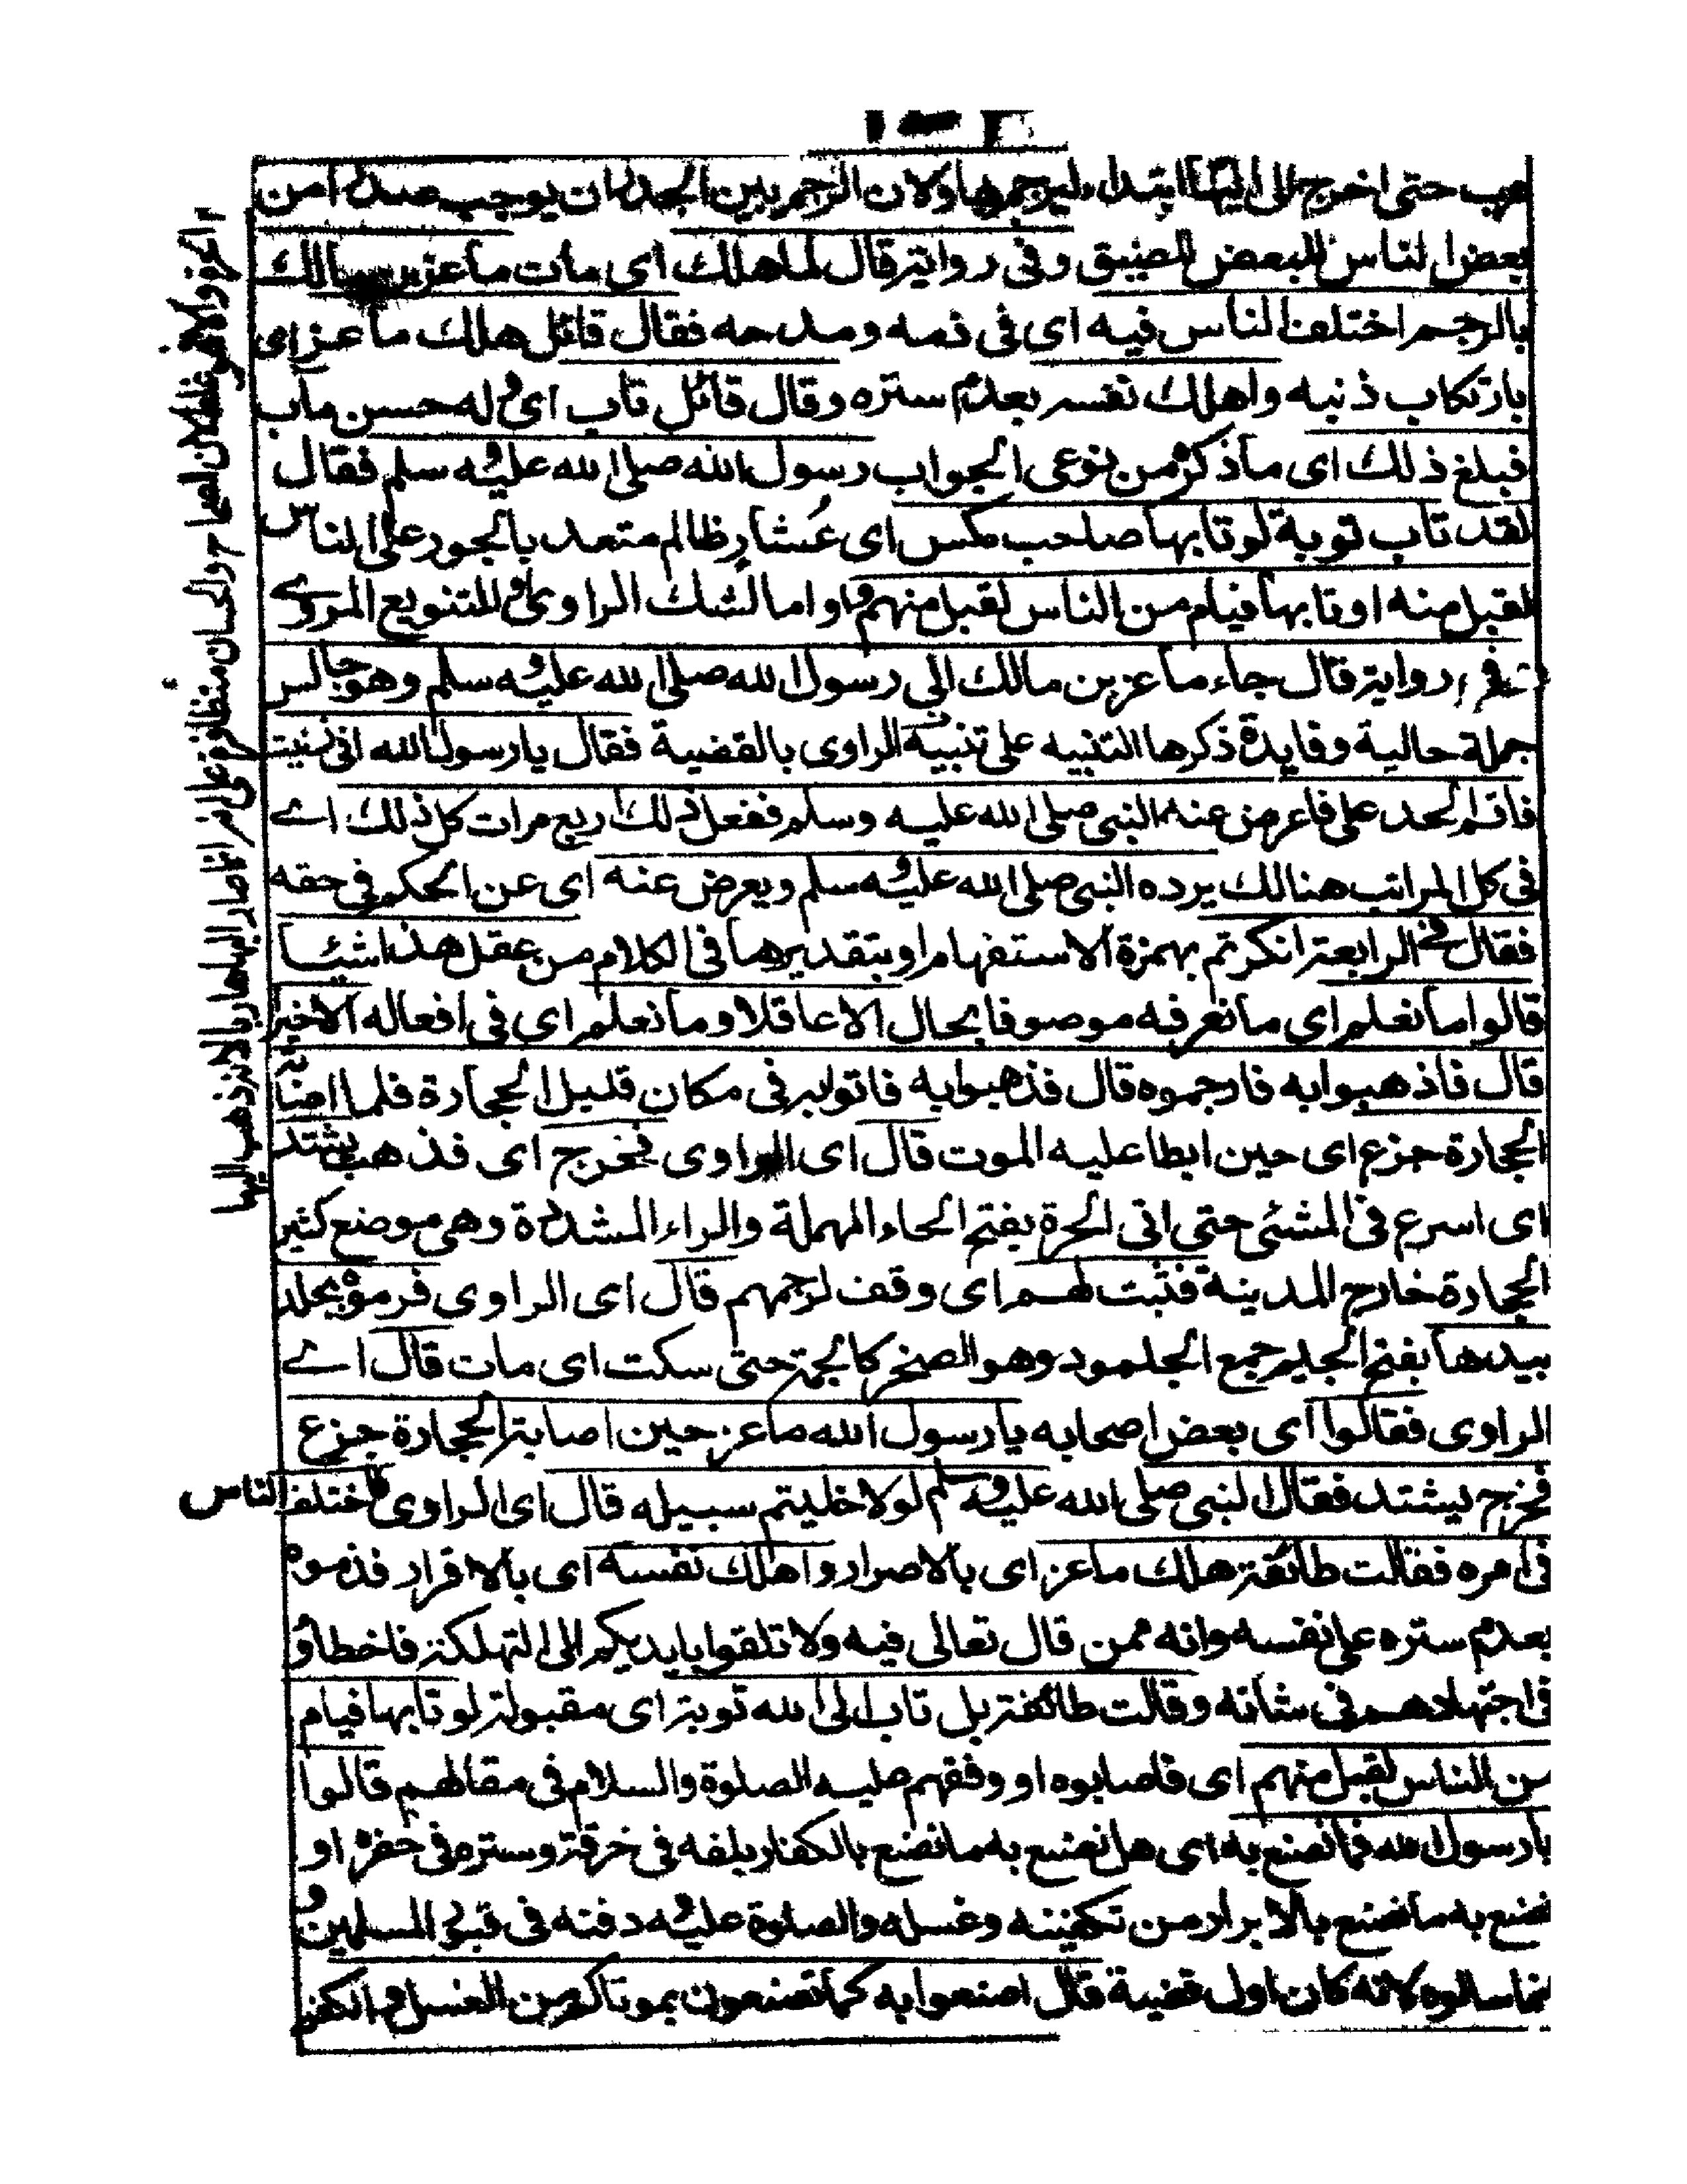 هرب حتى اخرج الى اليها ابتداء ليرجمها ولان الرجم بين الجدران يوجب صدرا من
بعض الناس للبعض للضيق وفى رواية قال لما هلك اى مات ماعز بن مالك
بالرجم اختلف الناس فيه اى فى ذمه ومدحه فقال قائل هلك ماعز اى
بارتكاب ذنبه واهلك نفسه بعدم ستره وقال قائل تاب اى وله حسن مآب
فبلغ ذلك اى ما ذكر من نوعى الجواب رسول الله صلى الله عليه وسلم فقال
لقد تاب توبة لو تابها صاحب مكس اى عُشار ظالم متعد بالجور على الناس
لقبل منه او تابها فيام من الناس لقبل منهم واو اما لشك الراوى او للتنويع المروى
وفى رواية قال جاء ماعز بن مالك الى رسول الله صلى الله عليه وسلم وهو جالس
جملة حالية وفايدة ذكرها التنبيه على تنبيه الراوى بالقضية فقال يا رسول الله انى زنيت
فاقم الحد على فاعرض عنه النبى صلى الله عليه وسلم ففعل ذلك اربع مرات كل ذلك اى
فى كل المراتب هنالك يرده النبى صلى الله عليه وسلم ويعرض عنه اى عن الحكم فى حقه
فقال فى الرابعة انكرتم بهمزة الاستفهام او بتقديرها فى الكلام من عقل هذا شيئا
قالوا ما نعلم اى ما نعرفه موصوفا بحال الا عاقلا وما نعلم اى فى افعاله الا خيرا
قال فاذهبوا به فارجموه قال فذهبوا به فاتوا به فى مكان قليل الحجارة فلما اصابته
الحجارة جزع اى حين ابطا عليه الموت قال اى الراوى فخرج اى فذهب يشتد
اى اسرع فى المشئى حتى اتى الحرة بفتح الحاء المهملة والراء المشددة وهى موضع كثير
الحجارة خارج المدينة فثبت لهم اى وقف لرجمهم قال اى الراوى فرموه بجلا
ميدها بفتح الجيم جمع الجلمود وهو الصخر كالجمة حتى سكت اى مات قال اى
الراوى فقالوا اى بعض اصحابه يا رسول الله ماعز حين اصابته الحجارة جزع
فخرج يشتد فقال النبى صلى الله عليه وسلم لولا خليتم سبيله قال اى الراوى فاختلف الناس
فى امره فقالت طائفة هلك ماعز اى بالاصرار واهلك نفسه اى بالاقرار فذموه
بعدم ستره على نفسه وانه ممن قال تعالى فيه ولا تلقوا بايديكم الى التهلكة فاخطاؤ
فى اجتهادهم فى شانه وقالت طائفة بل تاب الى الله توبة اى مقبولة لو تابها فيام
من الناس لقبل منهم اى فاصابوه او وفقهم عليه الصلوة والسلام فى مقالهم قالوا
يا رسول الله فما نصنع به اى هل نصنع به ما نصنع بالكفار بلفه فى خرقة وستره فى حفرة او
نصنع به ما نصنع بالابرار من تكفينه وغسله والصلوة عليه ودفنه فى قبور المسلمين و
انما سالوه لانه كان اول قضية قال اصنعوا به كما تصنعون بموتاكم من الغسل والكفن